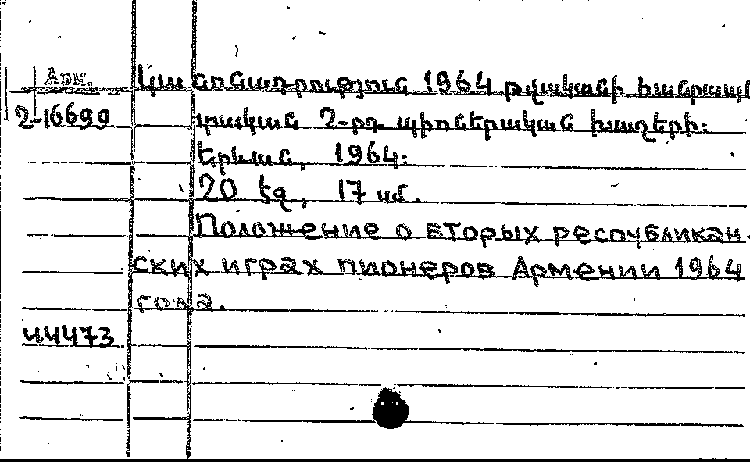 Арм.
Կանոնադրություն 1964 թվականի հանրապե
2-16699
տական 2-րդ պիոներական խաղերի:
Երևան, 1964:
20 էջ, 17 սմ.
Положение о вторых республикан-
ских играх пионеров Армении 1964
года.
44473